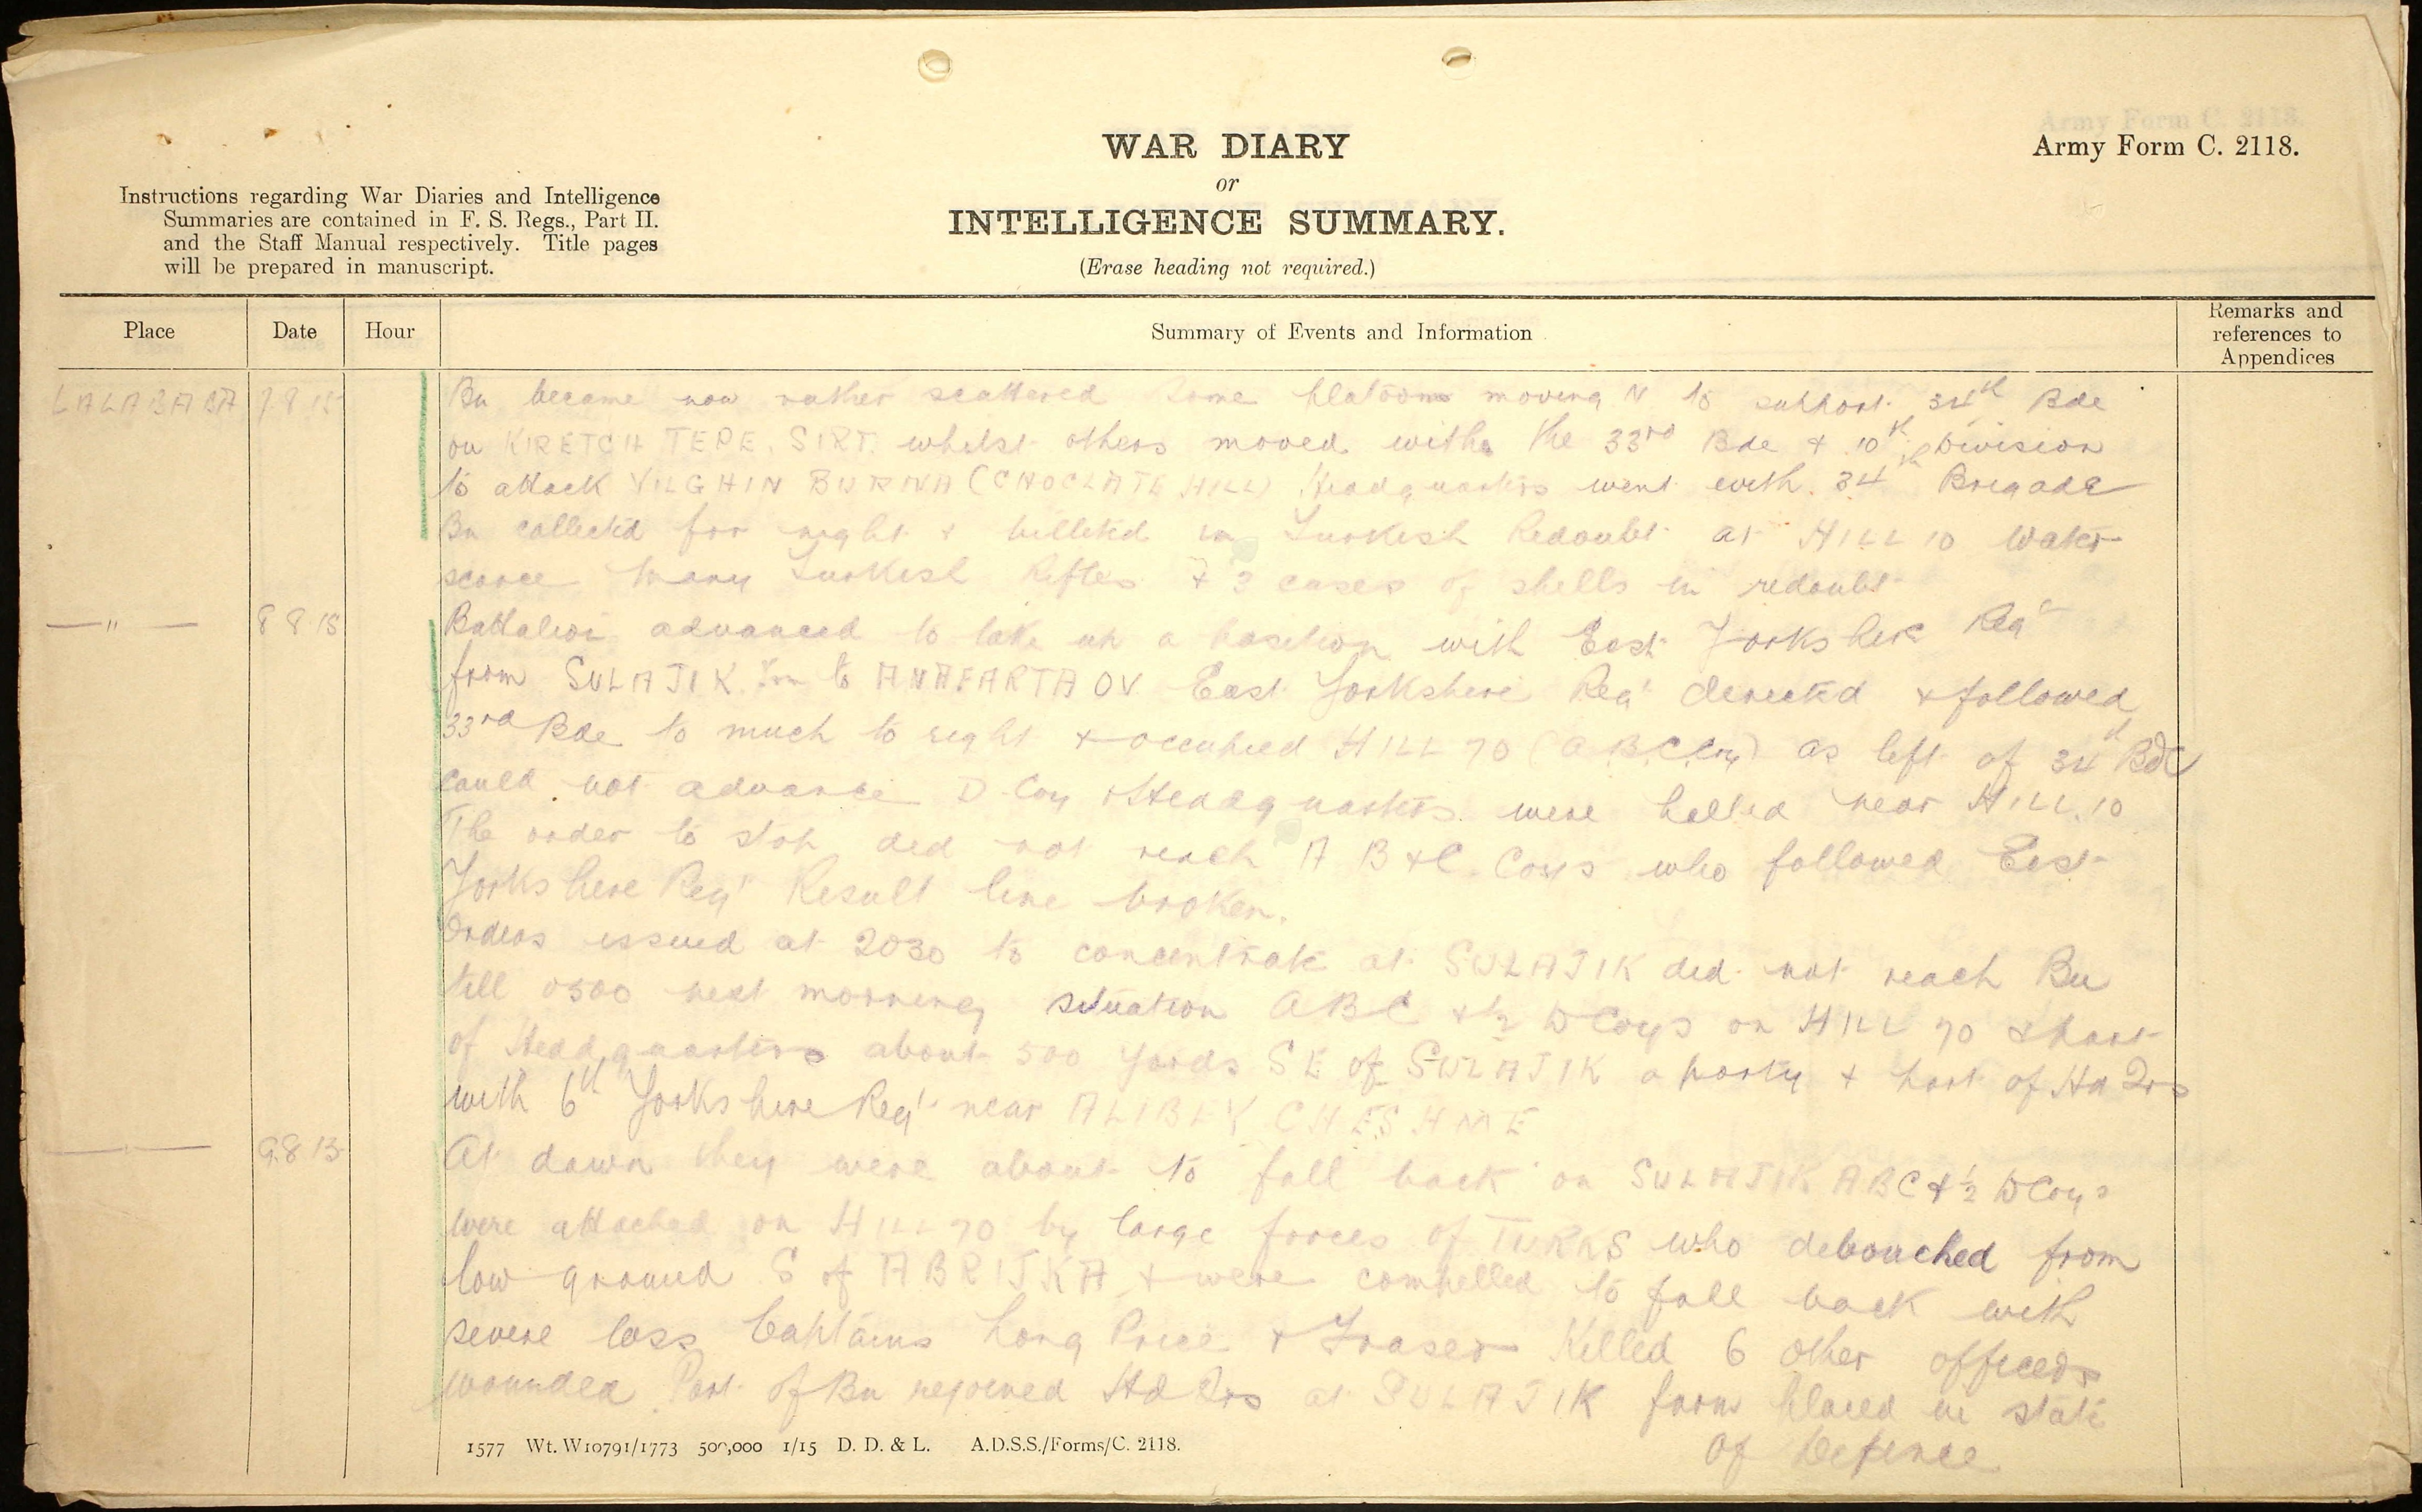 Army Form C. 2118.
WAR DIARY
or
INTELLIGENCE SUMMARY.
(Erase heading not required.)
Instructions regarding War Diaries and Intelligence
Summaries are contained in F. S. Regs., Part II.
and the Staff Manual respectively. Title pages
will be prepared in manuscript.
Place Date Hour Summary of Events and Information Remarks and references to Appendices
LALABABA 7 8 15 Bn became now rather scattered some platoons moving N to support 34th Bde
on KIRETCH TEPE. SIRT. whilst others moved with the 33rd Bde & 10th Division
to attack YILGHIN BURNA (CHOCLATE HILL) Headquarters went with 34th Brigade
Bn collected for night & billeted in Turkish Redoubt at HILL 10 Water
scarce Many Turkish Rifles & 3 cases of shells in redoubt
—"— 8 8 15 Battalion advanced to take up a position with East Yorkshire Regt
from SULAJIK to ANAFARTA OV East Yorkshire Regt directed & followed
33rd Bde to much to right & occupied HILL 70 (A B C Coy) as left of 34th Bde
could not advance D Coy & Headquarters were halted near HILL 10
The order to stop did not reach A B & C Coys who followed East
Yorkshire Regt Result line broken.
Orders issued at 2030 to concentrate at SULAJIK did not reach Bn
till 0300 next morning situation ABC & ½ D Coys on HILL 70 & part
of Headquarters about 500 yards SE of SULAJIK a party & part of Hd Qrs
with 6th Yorkshire Regt near ALIBEY CHESHME
—"— 9 8 15 At dawn they were about to fall back on SULAJIK ABC & ½ D Coys
were attacked on HILL 70 by large forces of TURKS who debouched from
low ground S of ABRIJKA & were compelled to fall back with
severe loss Captains Long Price & Fraser Killed 6 other officers
wounded Part of Bn rejoined Hd Qrs at SULAJIK farm placed in state
of Defence
1577 Wt. W10791/1773 500,000 1/15 D. D. & L. A.D.S.S./Forms/C. 2118.